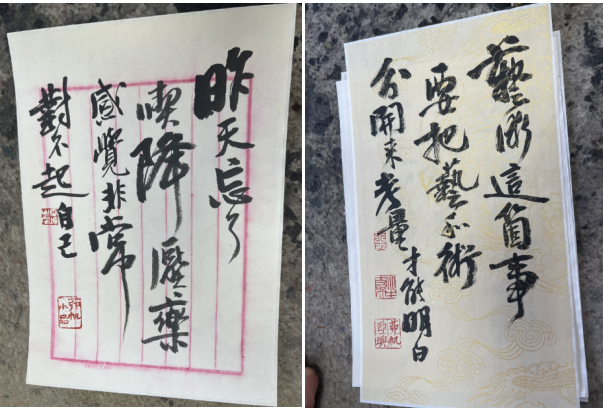 昨天忘了
喫降壓藥
感覺非常
對不起自己
藝術這箇事
要把藝和術
分開來考量
才能明白